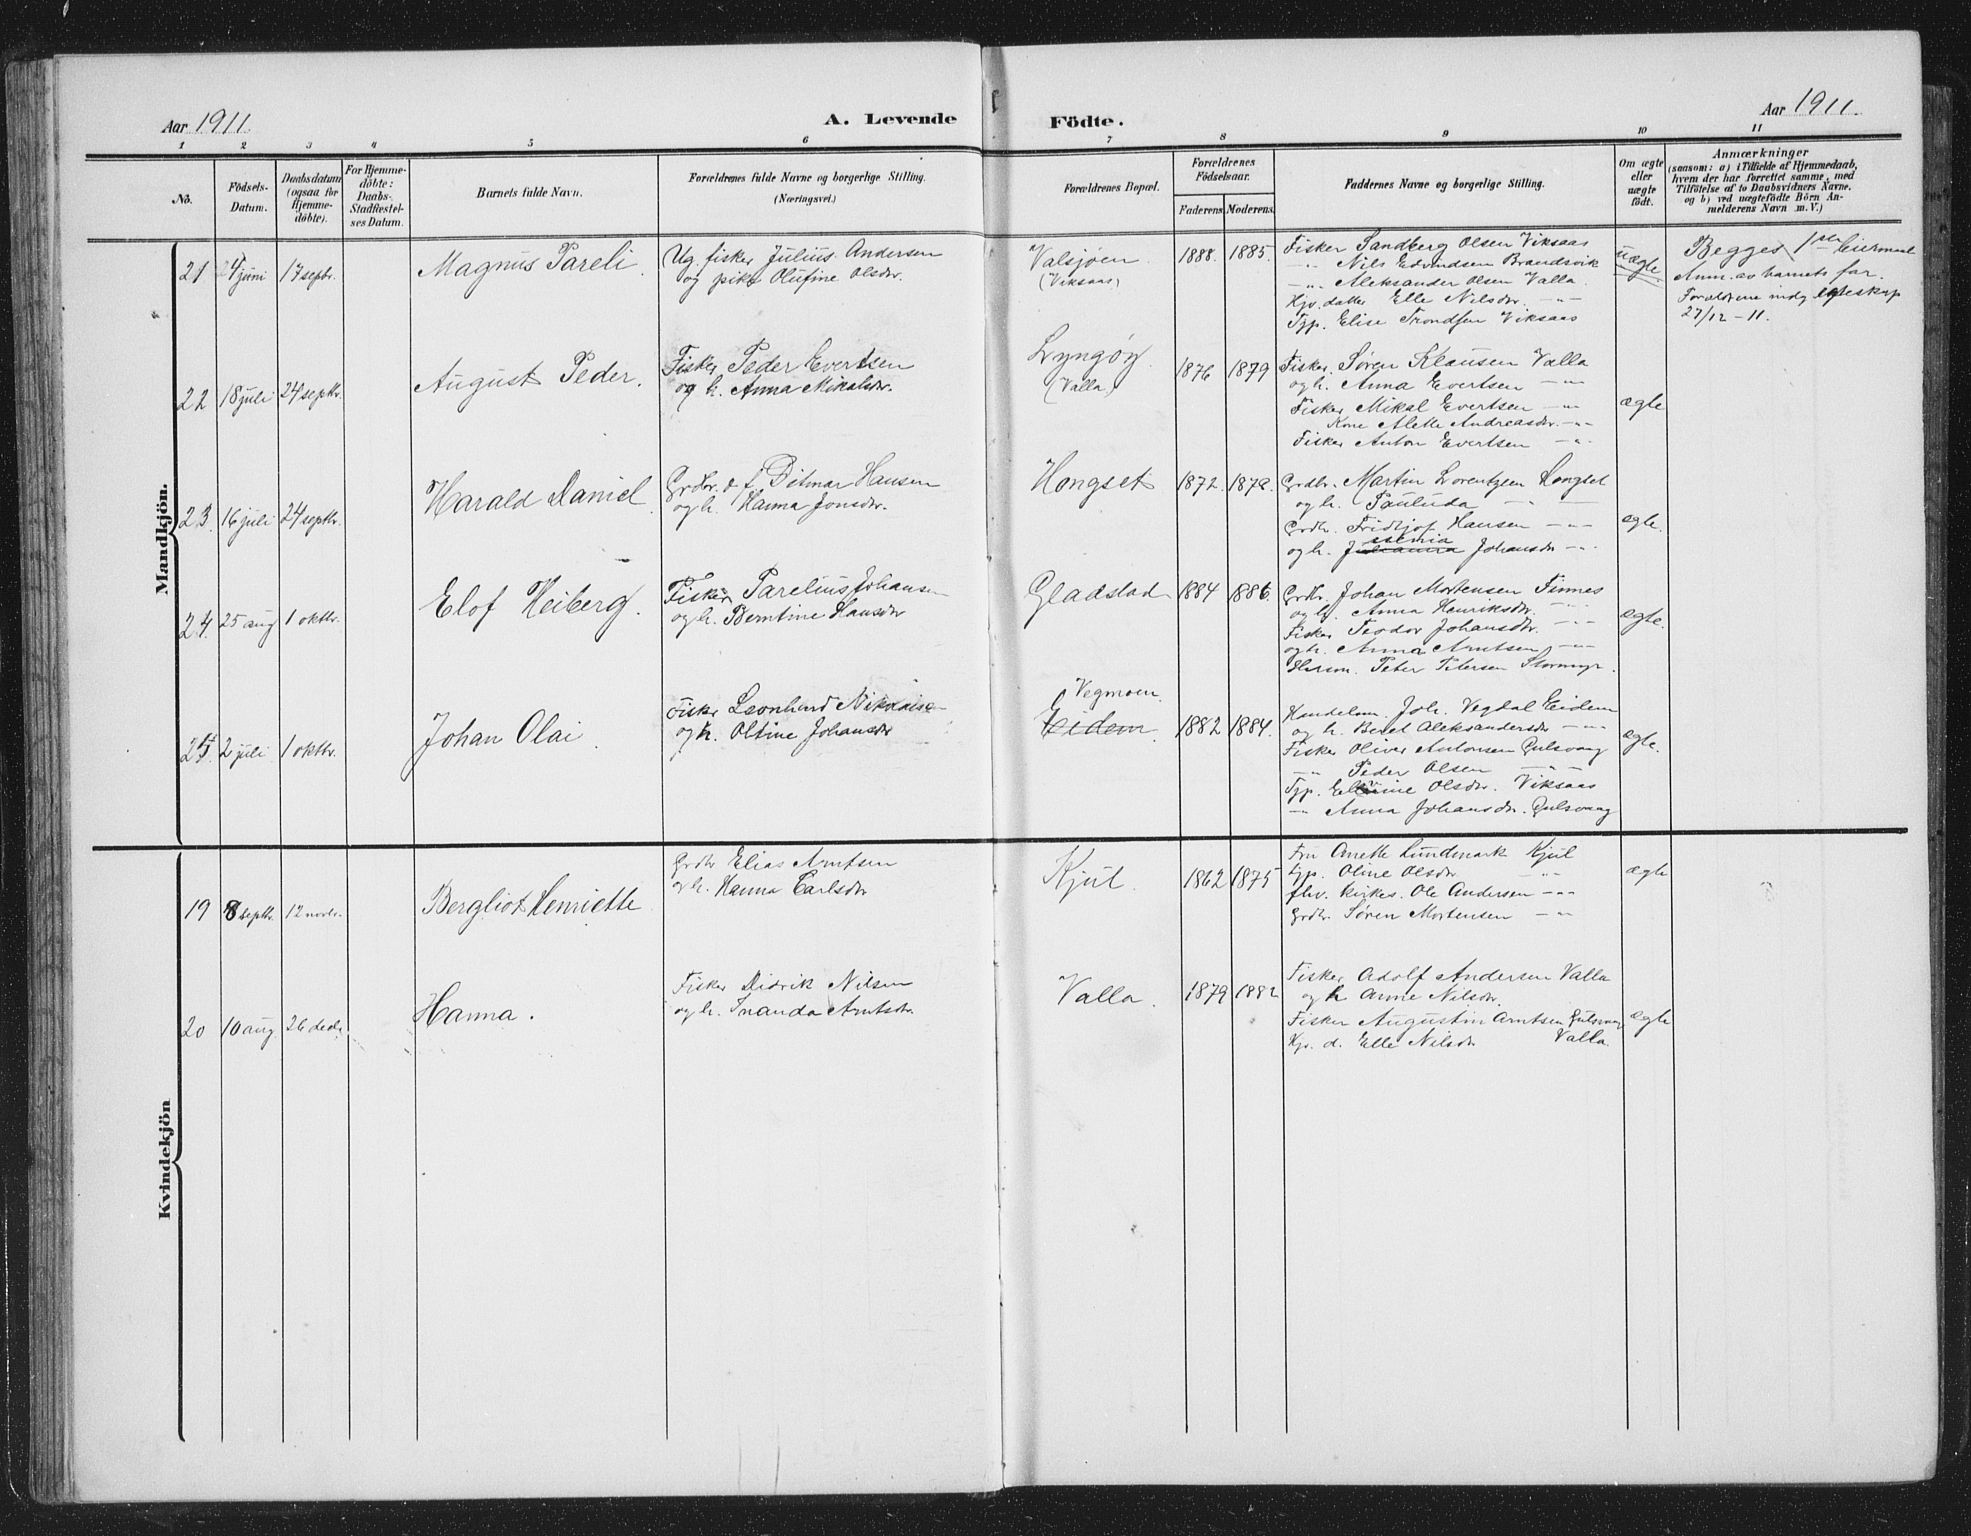 Aar 1911. A. Levende Födte. Aar 1911.
1 2 3 4 5 6 7 8 9 10 11
No.
Födsels-
Datum.
Daabsdatum
(ogsaa for
Hjemme-
döbte).
For Hjemme-
döbte:
Daabs-
Stadfæstel-
ses Datum.
Barnets fulde Navn.
Forældrenes fulde Navne og borgerlige Stilling.
(Næringsvei.)
Forældrenes Bopæl.
Forældrenes
Födselsaar.
Faderens. Moderens.
Faddernes Navne og borgerlige Stilling.
Om ægte
eller
uægte
födt.
Anmærkninger
(saasom: a) i Tilfælde af Hjemmedaab,
hvem der har forrettet samme, med
Tilföielse af to Daabsvidners Navne.
og b) ved uægtefödte Börn An-
melderens Navn m. V.)
Mandkjön.
21 24 juni 17 septbr. Magnus Pareli.
Ug. fisker Julius Andersen
og pike Olufine Olsdtr.
Valsjøen.
(Viksaas)
1888. 1885.
Fisker Sandberg Olsen Viksaas
-"- Nils Edvindsen Brandsvik
-"- Aleksander Olsen Valla.
Hjv. datter Elle Nilsdtr. -"-
Tjp. Elise Trondsen Viksaas
uægte.
Begges 1ste Leiermaal
Anm. av barnets far.
Forældrene indg. egteskap
27/12-11.
22 18 juli 24 septbr. August Peder.
Fisker Peder Evertsen
og h. Anna Mikalsdtr.
Lyngøy
(Valla)
1876 1879
Fisker Søren Klausen Valla
og h. Anna Evertsen -"-
Fisker Mikal Evertsen -"-
Kone Alette Andreasdtr. -"-
Fisker Anton Evertsen -"-
ægte
23. 16 juli 24 septbr. Harald Daniel.
Grdbr. Ditmar Hansen
og h. Hanna Jonsdtr.
Hongset
1872. 1872.
Grdbr. Martin Lorentzen Hongset
og h. Pauluda -"-
Grdbr. Fridtjof Hansen -"-
og h. Johansdtr -"-
ægte.
24. 25 aug 1 oktbr. Elof Heiberg.
Fisker Parelius Johansen
og h. Berntine Hansdtr
Gladstad
1884 1886.
Grdbr. Johan Mortensen Finnes
og h. Anna Henriksdtr. -"-
Fisker Teodor Johansdtr. -"-
og h. Anna Arntsen -"-
Peter Petersen Stormyr.
ægte.
25. 2 juli 1 oktbr. Johan Olai.
Fisker Leonhard Nikolaisen
og h. Oltine Johansdtr
Vegmoen
Eidem.
1882 1884.
Handelsm. Joh. Vegdal Eidem
og h. Beret Aleksandersdtr -"-
Fisker Oliver Antonsen Gulsvaag
-"- Peder Olsen -"-
Tjp. Olsdtr. Viksaas
-"- Anna Johansdtr. Gulsvaag
ægte.
Kvindekjön
19 8 septbr. 12 novbr. Bergliot Henriette
Grdbr Elias Arntsen
og h. Hanna Carlsdtr
Kjul.
1862 1875
Fru Anette Lundmark Kjul
tjp. Oline Olsdtr -"-
fhv. kirkes. Ole Andersen -"-
Grdbr. Søren Mortensen -"-
ægte
20 10 aug 26 decbr. Hanna.
Fisker Didrik Nilsen
og h. Inanda Arntsdtr.
Valla.
1879 1882
Fisker Adolf Andersen Valla
og h Anne Nilsdtr.
Fisker Augustin Arntsen Gulsvaag
Hjv. d. Elle Nilsdtr Valla.
ægte